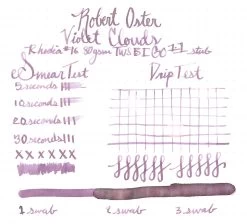 Robert Oster
Violet Clouds
Rhodia #16 80gsm TWSBI ECO 1.1 stub
Smear Test
Drip Test
5 seconds
10 seconds
20 seconds
30 seconds
X X X X X X
1 swab
2 swab
3 swab